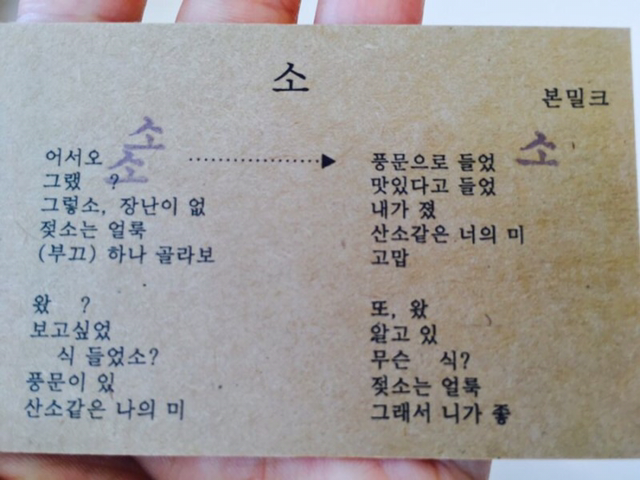 소
본밀크
소
어서오
소
그랬 ?
그렇소, 장난이 없
젖소는 얼룩
(부끄) 하나 골라보
왔 ?
보고싶었
식 들었소?
풍문이 있
산소같은 나의 미
소
풍문으로 들었
맛있다고 들었
내가 졌
산소같은 너의 미
고맙
또, 왔
알고 있
무슨 식?
젖소는 얼룩
그래서 니가 좋